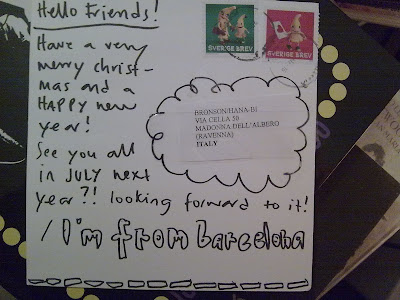 Hello Friends!
Have a very
merry christ-
mas and a
HAPPY new
year!
See you all
in JULY next
year?! looking forward to it!
/ I'm from barcelona
SVERIGE BREV
SVERIGE BREV
BRONSON/HANA-BI
VIA CELLA 50
MADONNA DELL'ALBERO
(RAVENNA)
ITALY